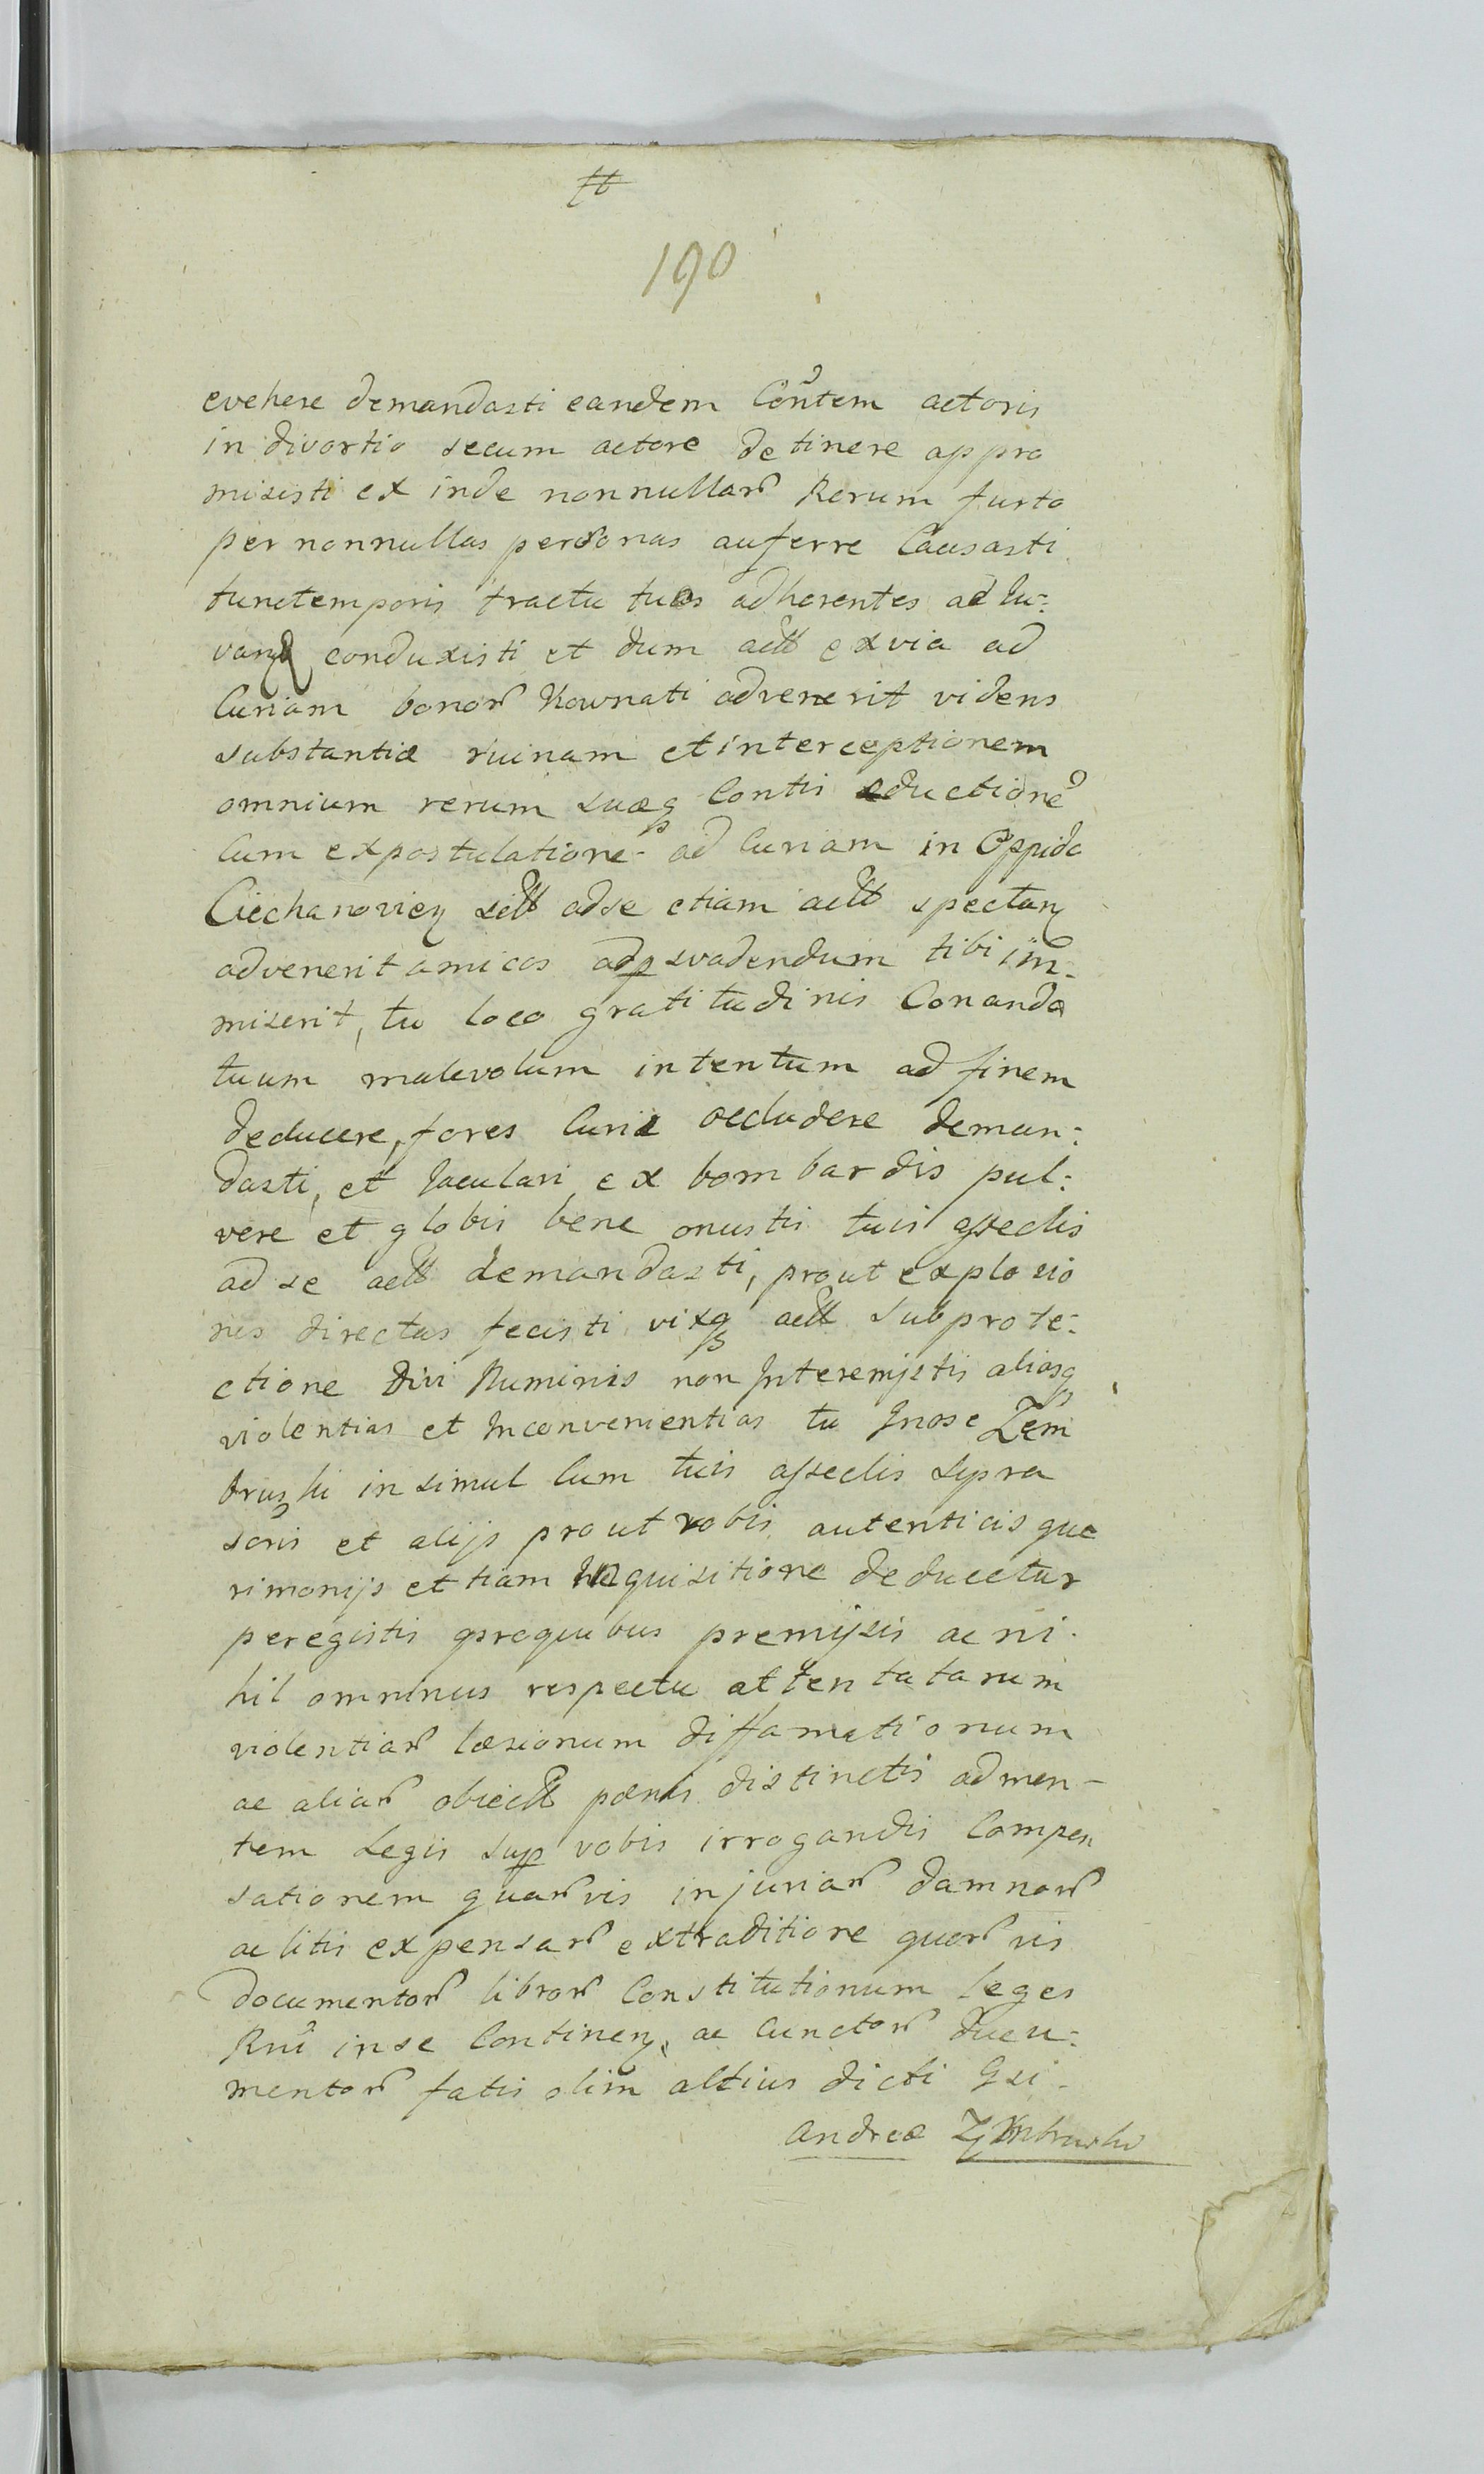 #
190
evehere demandasti eandem Con̄tem actoris
in divortio secum actore detinere appro
misisti ex inde nonnullar̃ Rerum furto
per nonnullas personas auferre Causasti
tunctemporis tractu tuos adherentes ad Iu:
vanđ conduxisti et dum act͠ ex via ad
Curiam bonor̃ Kownati advenerit videns
substantiæ ruinam et interceptionem
omnium rerum suæq Contis eductionẽ
Cum expostulatione ad Curiam in Oppido
Ciechanoviecz adse etiam act͠ spectanz
advenerit amicos adp̱svadendum tibi im-
miserit, tu loco gratitudinis Conando
tuum malevolum intentum ad finem
deducere, fores Curiæ occludere deman:
dasti, et Jaculari ex bombardis pul:
vere et globis bene onustis tuis asseclis
ad se act͠ demandasti, prout explosio
nes directas fecisti vixq act͠ sub prote:
ctione Divi Numinis non Interemistis aliasq
violentias et Inconvenientias tu Gnose Zem
bruski in simul Cum tuis asseclis supra
scris et alijs prout vobis autenticis que
rimonijs et tiam Inquisitione deducetur
peregistis proquibus premissis ac ni
hil omninus respectu attentatarum
violentiar̃ læsionum diffamationum
ac aliar̃ obiect͠ pænis distinctis ad men-
tem Legis sup̱ vobis irrogandis Compen
sationem quar̃vis injuriar̃ damnor̃
ac litis expensar̃ extraditione quor̃vis
documentor̃ libror̃ Constitutionum leges
Rni inse Continenz, ac Cunctor̃ ducu:
mentor̃ fatis olim altius dicti Gsi
Andreæ Zymbruski